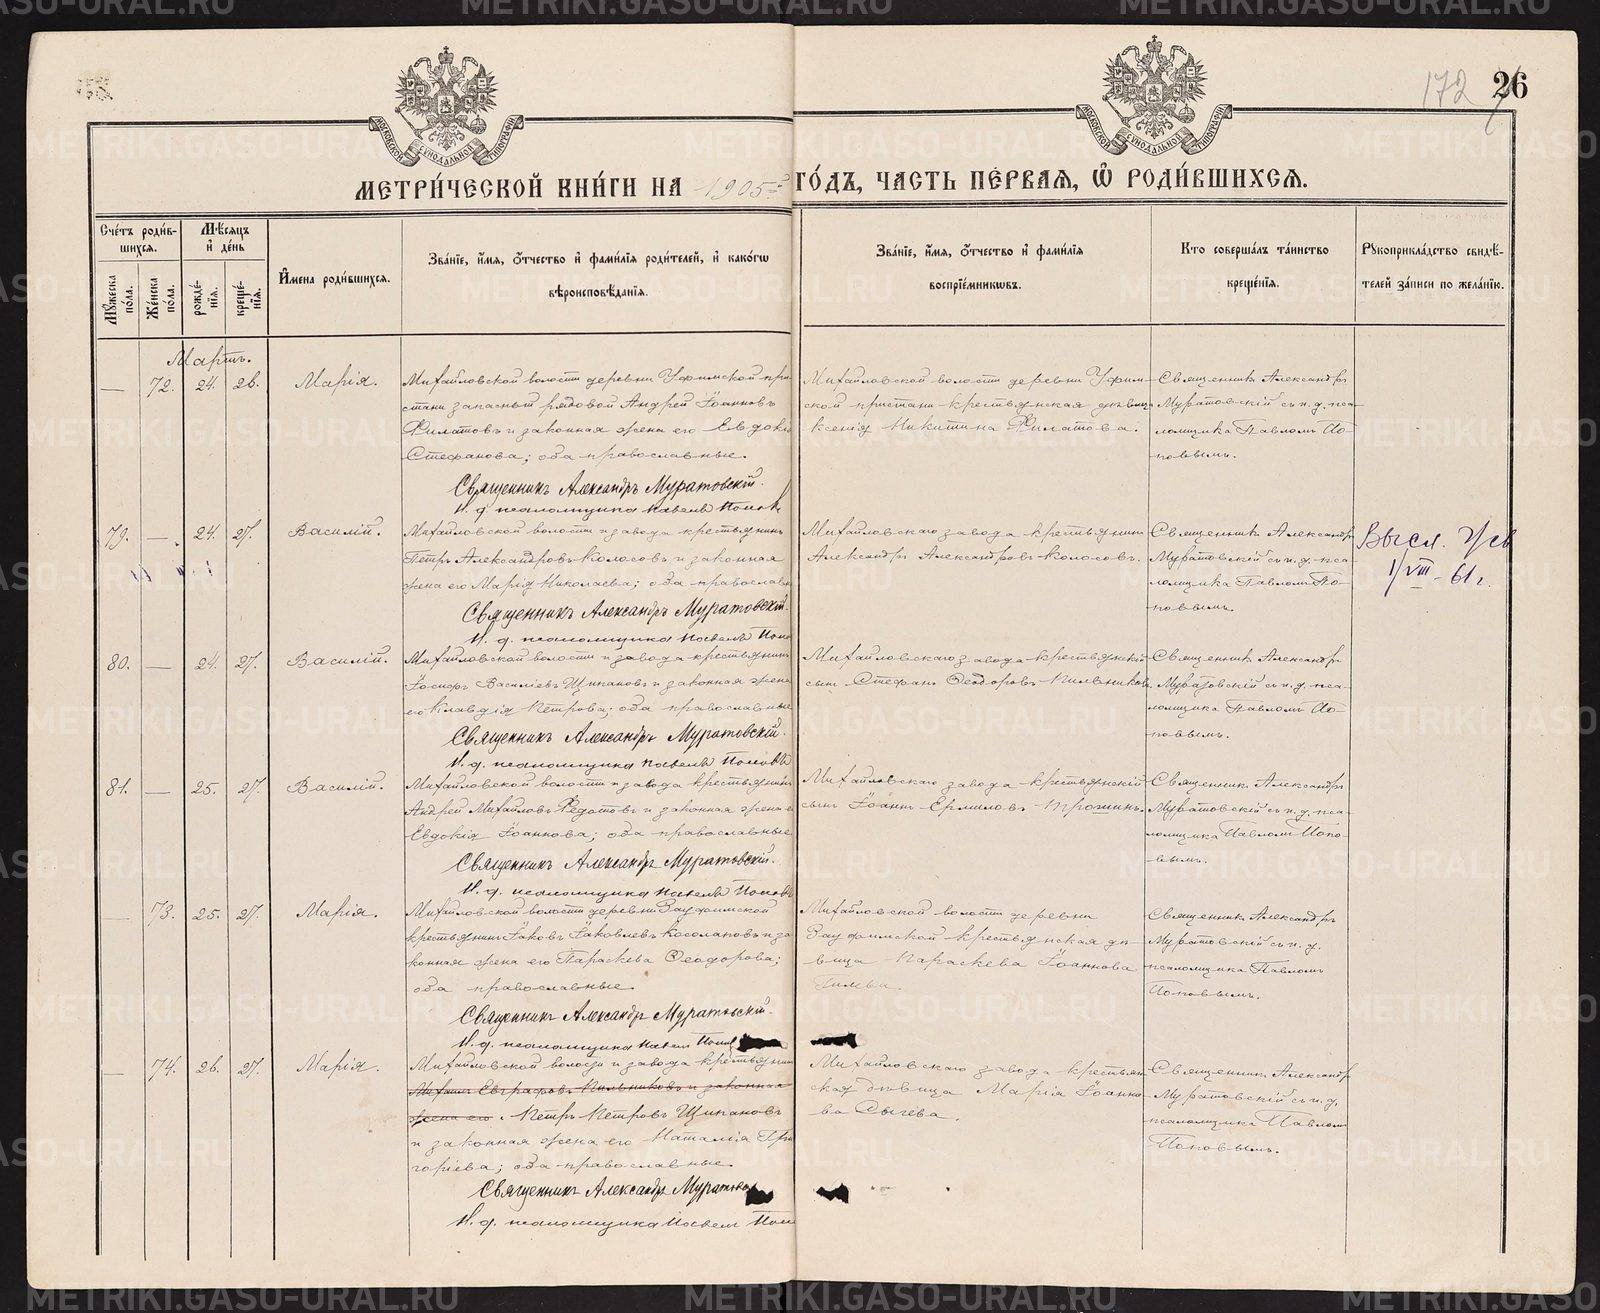 172 26
МОСКОВСКОЙ СУНОДАЛЬНОЙ ТИПОГРАФИИ
МОСКОВСКОЙ СУНОДАЛЬНОЙ ТИПОГРАФИИ
МЕТРИ́ЧЕСКОЙ КНИ́ГИ НА 1905 ГО́ДЪ, ЧАСТЬ ПЕ́РВАЯ, Ѿ РОДИ́ВШИХСЯ.
Сче́тъ роди́в-
шихся.
Мѣсяцъ
и҆ де́нь
Мꙋжеска по́ла.
Же́нска по́ла.
рожде́-
нїя.
креще́-
нїя.
И҆мена роди́вшихся.
Зва́нїе, и҆́мя, ѻ҆́тчество и҆ фами́лїя роди́телей, и҆ како́гѡ
вѣроисповѣ́данїя.
Зва́нїе, и҆́мя, ѻ҆́тчество и҆ фами́лїя
воспрїе́мникѡвъ.
Кто соверша́лъ та́инство
креще́нїя.
Рꙋкоприкла́дство свидѣ́-
телей за́писи по жела́нїю.
Мартъ.
— 72. 24. 26. Марія.
Михайловской волости деревни Уфимской при-
стани запасный рядовой Андрей Іоанновъ
Филатовъ и законная жена его Евдокія
Стефанова; оба православные.
Священникъ Александръ Муратовскій.
И. д. псаломщика Павелъ Поповъ
Михайловской волости деревни Уфим-
ской пристани крестьянская дѣвица
Ксенія Никитина Филатова.
Священникъ Александръ
Муратовскій съ и. д. пса-
ломщика Павломъ По-
повымъ.
79. — 24. 27. Василій.
Михайловской волости и завода крестьянинъ
Петръ Александровъ Колосовъ и законная
жена его Марія Николаева; оба православн
Священникъ Александръ Муратовскій.
И. д. псаломщика Павелъ Попо
Михайловскаго завода крестьянин
Александръ Александровъ Колосовъ.
Священникъ Александръ
Муратовскій съ и. д. пса-
ломщика Павломъ По-
повымъ.
Высл.
1/VIII - 61 г.
80. — 24. 27. Василій.
Михайловской волости и завода крестьянинъ
Іосифъ Василіевъ Щипановъ и законная жена
его Клавдія Петрова; оба православные
Священникъ Александръ Муратовскій.
И. д. псаломщика Павелъ Поповъ
Михайловскаго завода крестьянскій
сынъ Стефанъ Ѳеодоровъ Пильников
Священникъ Александръ
Муратовскій съ и. д. пса-
ломщика Павломъ По-
повымъ.
81. — 25. 27. Василій.
Михайловской волости и завода крестьянинъ
Андрей Михайловъ Федотовъ и законная жена е
Евдокія Іоаннова; оба православные
Священникъ Александръ Муратовскій.
И. д. псаломщика Павелъ Поповъ
Михайловскаго завода крестьянскій
сынъ Іоаннъ Ермиловъ Трошинъ.
Священникъ Александръ
Муратовскій съ и. д. пса-
ломщика Павломъ Попо-
вымъ.
— 73. 25. 27. Марія.
Михайловской волости деревни Зауфимской
крестьянинъ Іаковъ Іаковлевъ Косолаповъ и за
конная жена его Параскева Ѳеодорова;
оба православные.
Священникъ Александръ Муратовскій.
И. д. псаломщика Павелъ Попов
Михайловской волости деревни
Зауфимской крестьянская дѣ-
вица Параскева Іоаннова
Священникъ Александръ
Муратовскій съ и. д.
псаломщика Павломъ
Поповымъ.
— 74. 26. 27. Марія.
Михайловской волости и завода крестьянин
Михаилъ Евграфовъ Пильниковъ и законная
жена его. Петръ Петровъ Щипановъ
и законная жена его Наталія Гри
горіева; оба православные.
Священникъ Александръ Муратов
И. д. псаломщика Павелъ Попо
Михайловскаго завода крестьян
ская дѣвица Марія Іоанно
ва Сычева.
Священникъ Александр
Муратовскій съ и. д.
псаломщика Павлом
Поповымъ.
METRIKI.GASO-URAL.RU